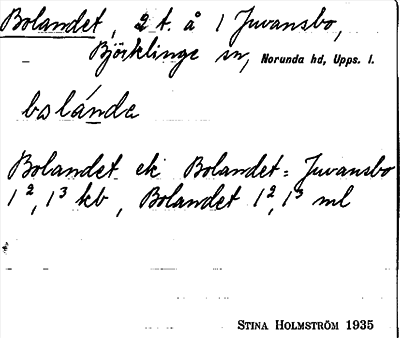 Bolandet, 2 t. å 1 Juvansbo,
Björklinge sn, Norunda hd, Upps. l.
bolánde
Bolandet ek Bolandet = Juvansbo
1², 1³ kb, Bolandet 1², 1³ ml
STINA HOLMSTRÖM 1935